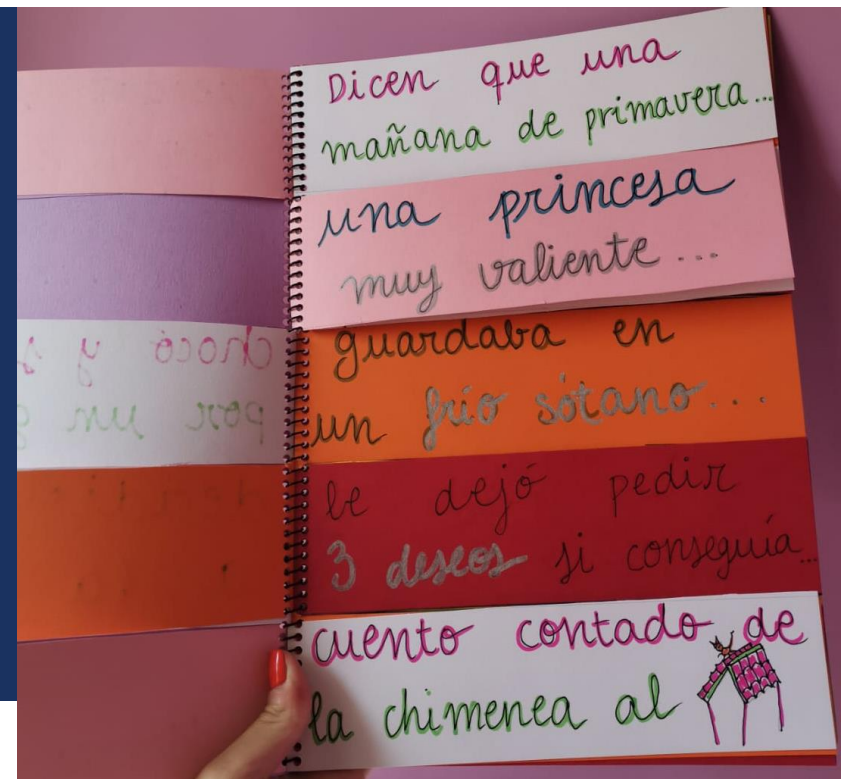 Dicen que una
mañana de primavera...
una princesa
muy valiente...
guardaba en
un frío sótano...
le dejó pedir
3 deseos si conseguía...
cuento contado de
la chimenea al
chocó y
por un